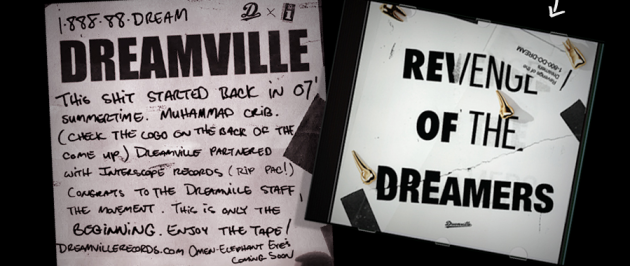 1·888·88·DREAM
D × i
DREAMVILLE
THIS SHIT STARTED BACK IN 07'
SUMMERTIME. MUHAMMAD CRIB.
(CHECK THE LOGO ON THE BACK OF THE
COME UP.) DREAMVILLE PARTNERED
WITH INTERSCOPE RECORDS (RIP PAC!)
CONGRATS TO THE DREAMVILLE STAFF
THE MOVEMENT. THIS IS ONLY THE
BEGINNING. ENJOY THE TAPE!
DREAMVILLERECORDS.COM OMEN-ELEPHANT EYES
COMING SOON
REVENGE
OF THE
DREAMERS
Revenge of the
Dreamers
1-800-DO-DREAM
Dreamville